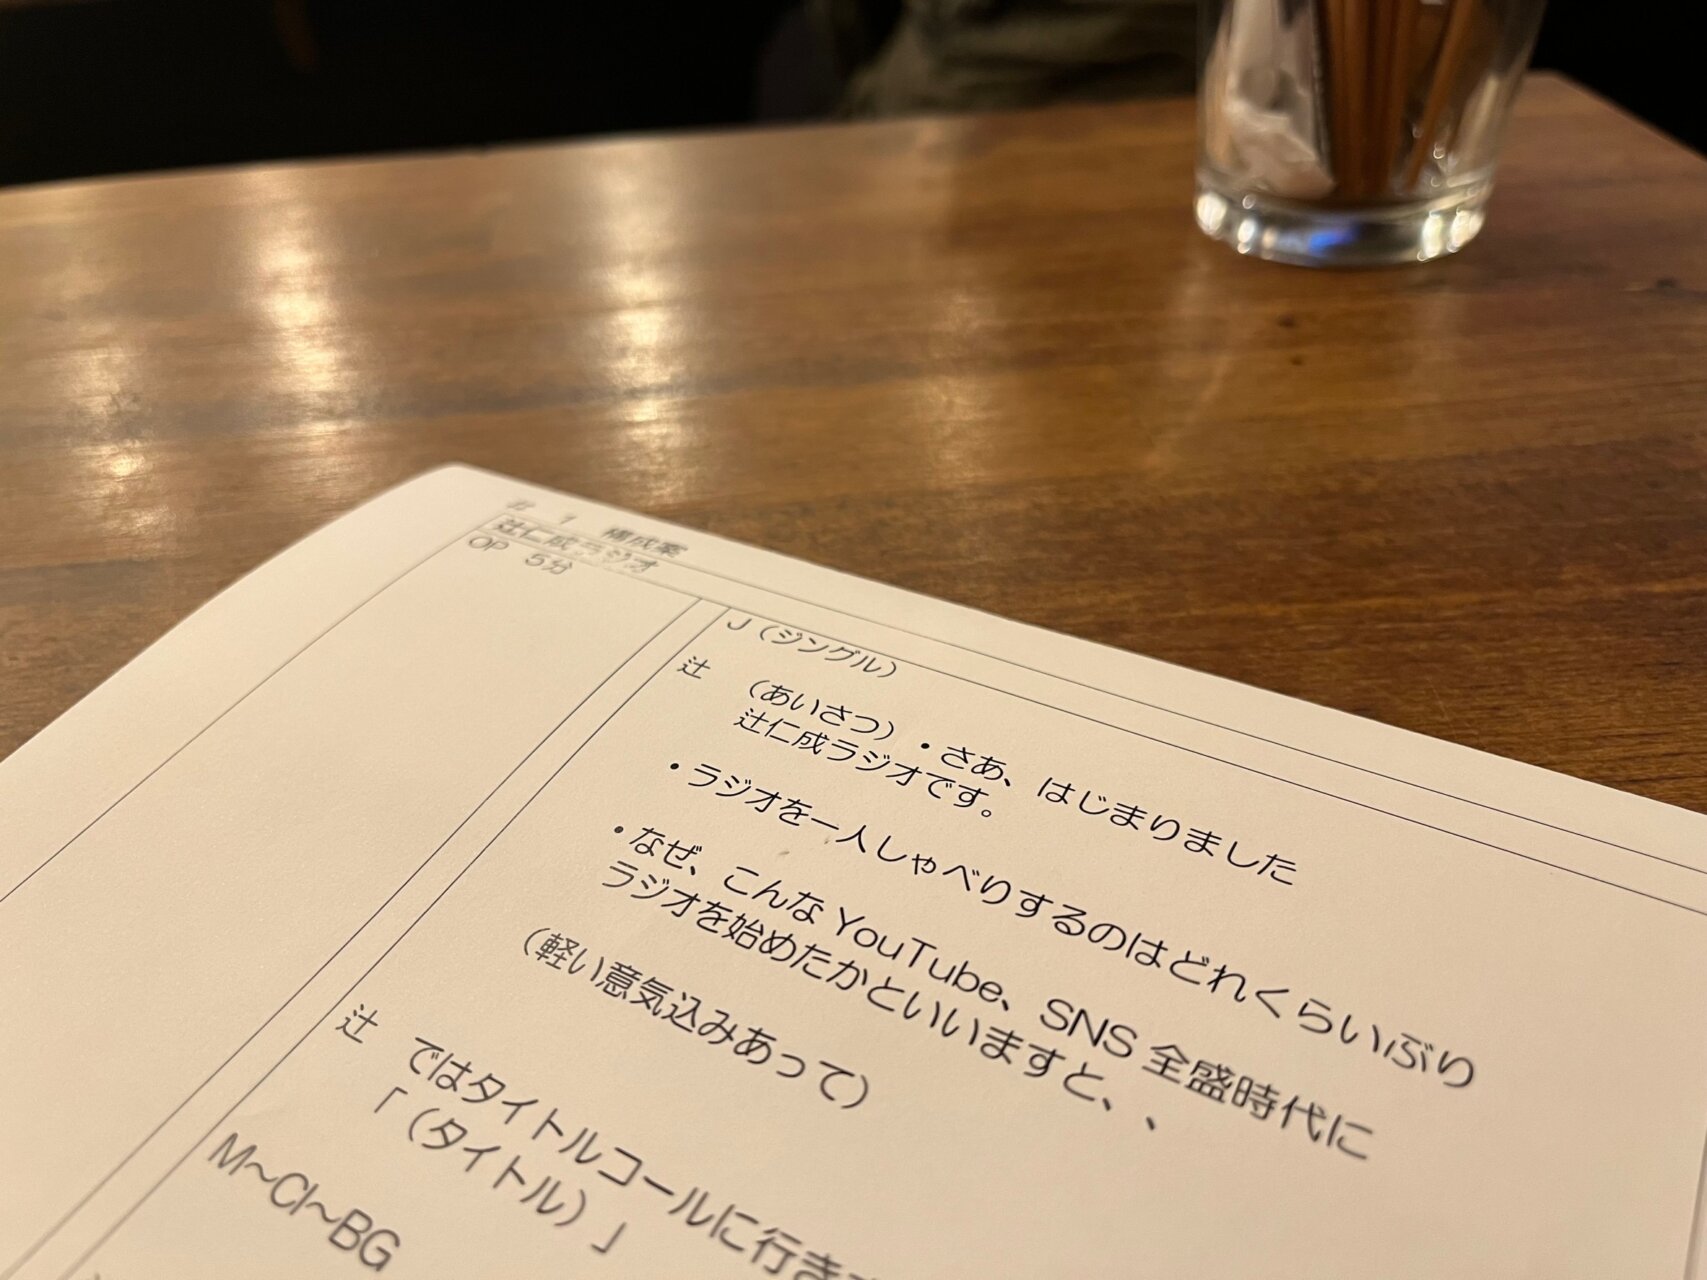 # 1 構成案
辻仁成ラジオ
OP 5分
J(ジングル)
辻 (あいさつ)・さあ、はじまりました
辻仁成ラジオです。
・ラジオを一人しゃべりするのはどれくらいぶり
・なぜ、こんな YouTube、SNS 全盛時代に
ラジオを始めたかといいますと、、
(軽い意気込みあって)
辻 ではタイトルコールに行きま
「(タイトル)」
M~CI~BG